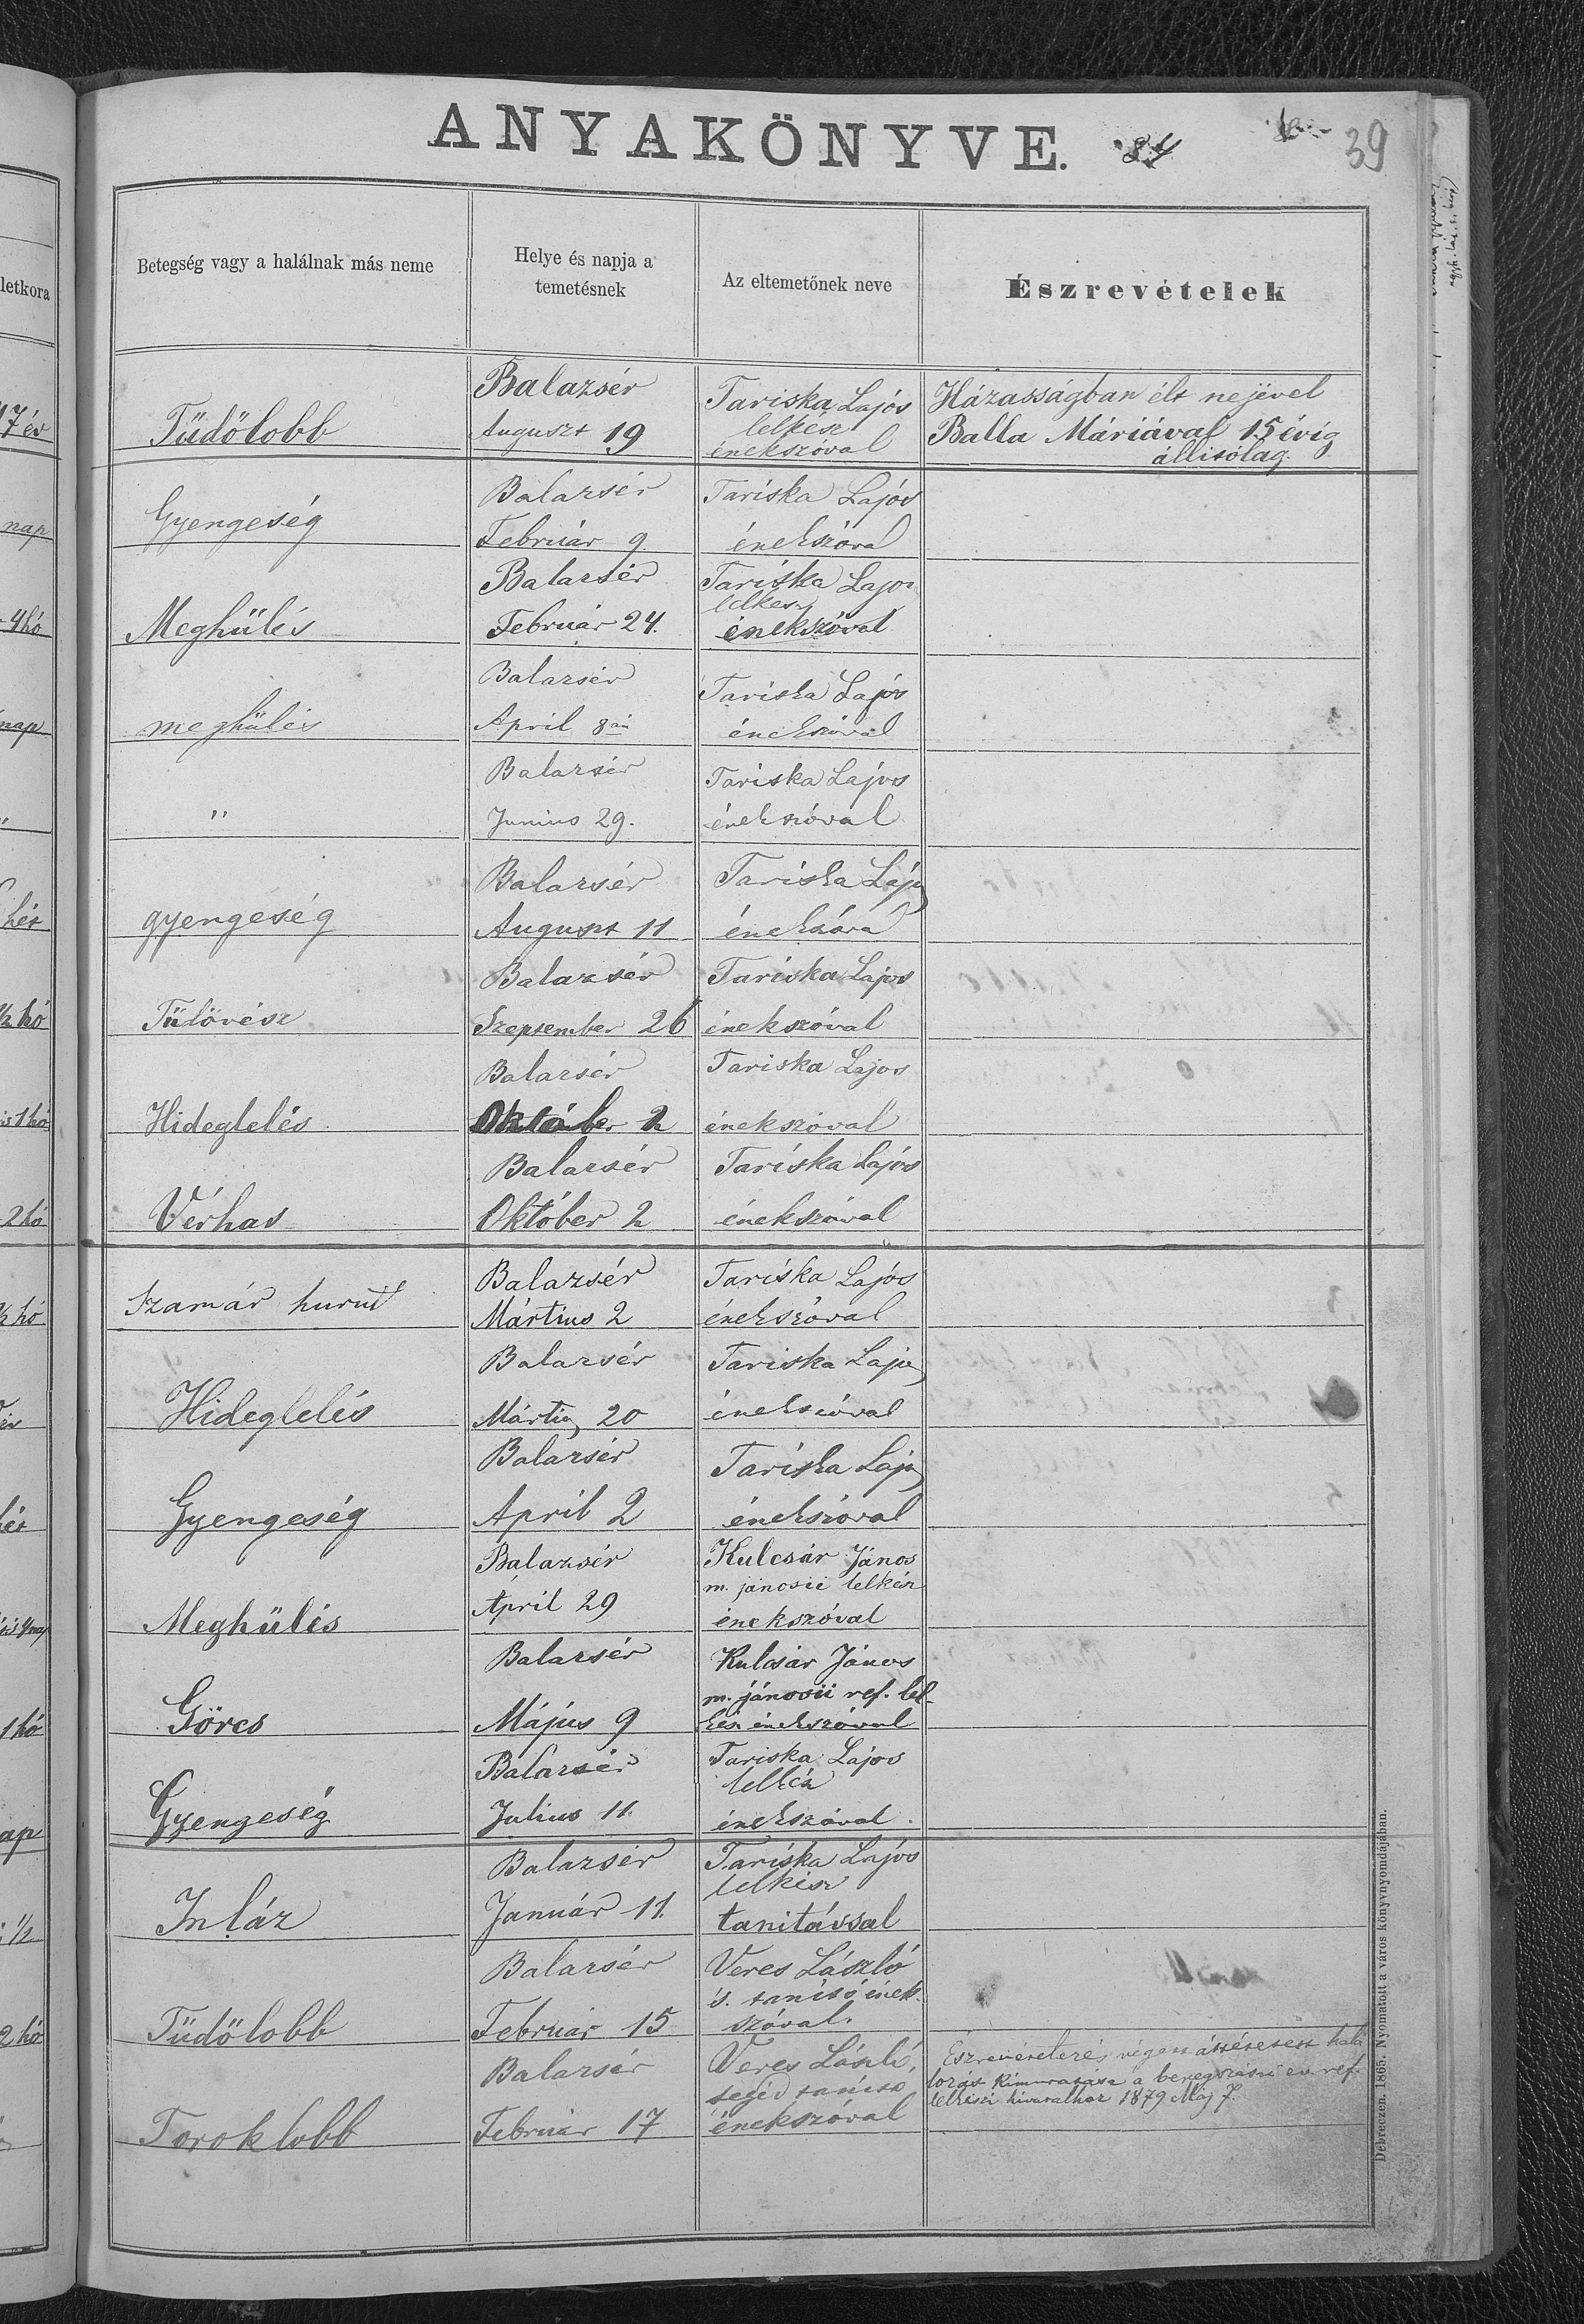 ANYAKÖNYVE. 84 39
Betegség vagy a halálnak más neme
Helye és napja a
temetésnek
Az eltemetőnek neve
Észrevételek
letkora
Balazsér
Tüdőlobb
August 19
Tariska Lajós
lelkész
énekszóval
Házasságban élt nejével
Balla Máriával 15 évig
állitólag.
17 év
Balazsér
Gyengeség
Február 9
Tariska Lajós
énekszóval
nap
Balazsér
Meghülés
Február 24.
Tariska Lajos
lelkész
énekszóval
4 hó
Balazsér
meghülés
April 8án
Tariska Lajós
énekszóval
nap
Balazsér
"
Junius 29.
Tariska Lajos
énekszóval
"
Balazsér
gyengeség
August 11
Tariska Lajos
énekszóval
hét
Balazsér
Tüdővész
Szeptember 26
Tariska Lajos
énekszóval
½ hó
Balazsér
Hideglelés
Október 2
Tariska Lajos
énekszóval
is 1 hó
Balazsér
Vérhas
Október 2
Tariska Lajós
énekszóval
2 hó
Balazsér
Szamár hurut
Mártius 2
Tariska Lajós
énekszóval
½ hó
Balazsér
Hideglelés
Mártius 20
Tariska Lajos
énekszóval
Balazsér
Gyengeség
April 2
Tariska Lajos
énekszóval
hét
Balazsér
Meghülés
April 29
Kulcsár János
m. jánosii lelkész
énekszóval
Balazsér
Görcs
Május 9
Kulcsár János
m. jánosii ref. lel-
kész énekszóval
1 hó
Balazsér
Gyengeség
Julius 11.
Tariska Lajos
lelkész
énekszóval.
nap
Balazsér
Inláz
Január 11.
Tariska Lajos
lelkész
tanitással
½
Balazsér
Tüdőlobb
Február 15
Veres László
s. tanitó ének-
szóval.
2 hó
Balazsér
Toroklobb
Február 17
Veres László,
segéd tanitó
énekszóval
Észrevételezés végett áttétetett halá
lozási kimutatása a beregszászi ev. ref.
lelkészi hivatalhoz 1879 Máj 7.
Debreczen. 1865. Nyomatott a város könyvnyomdájában.